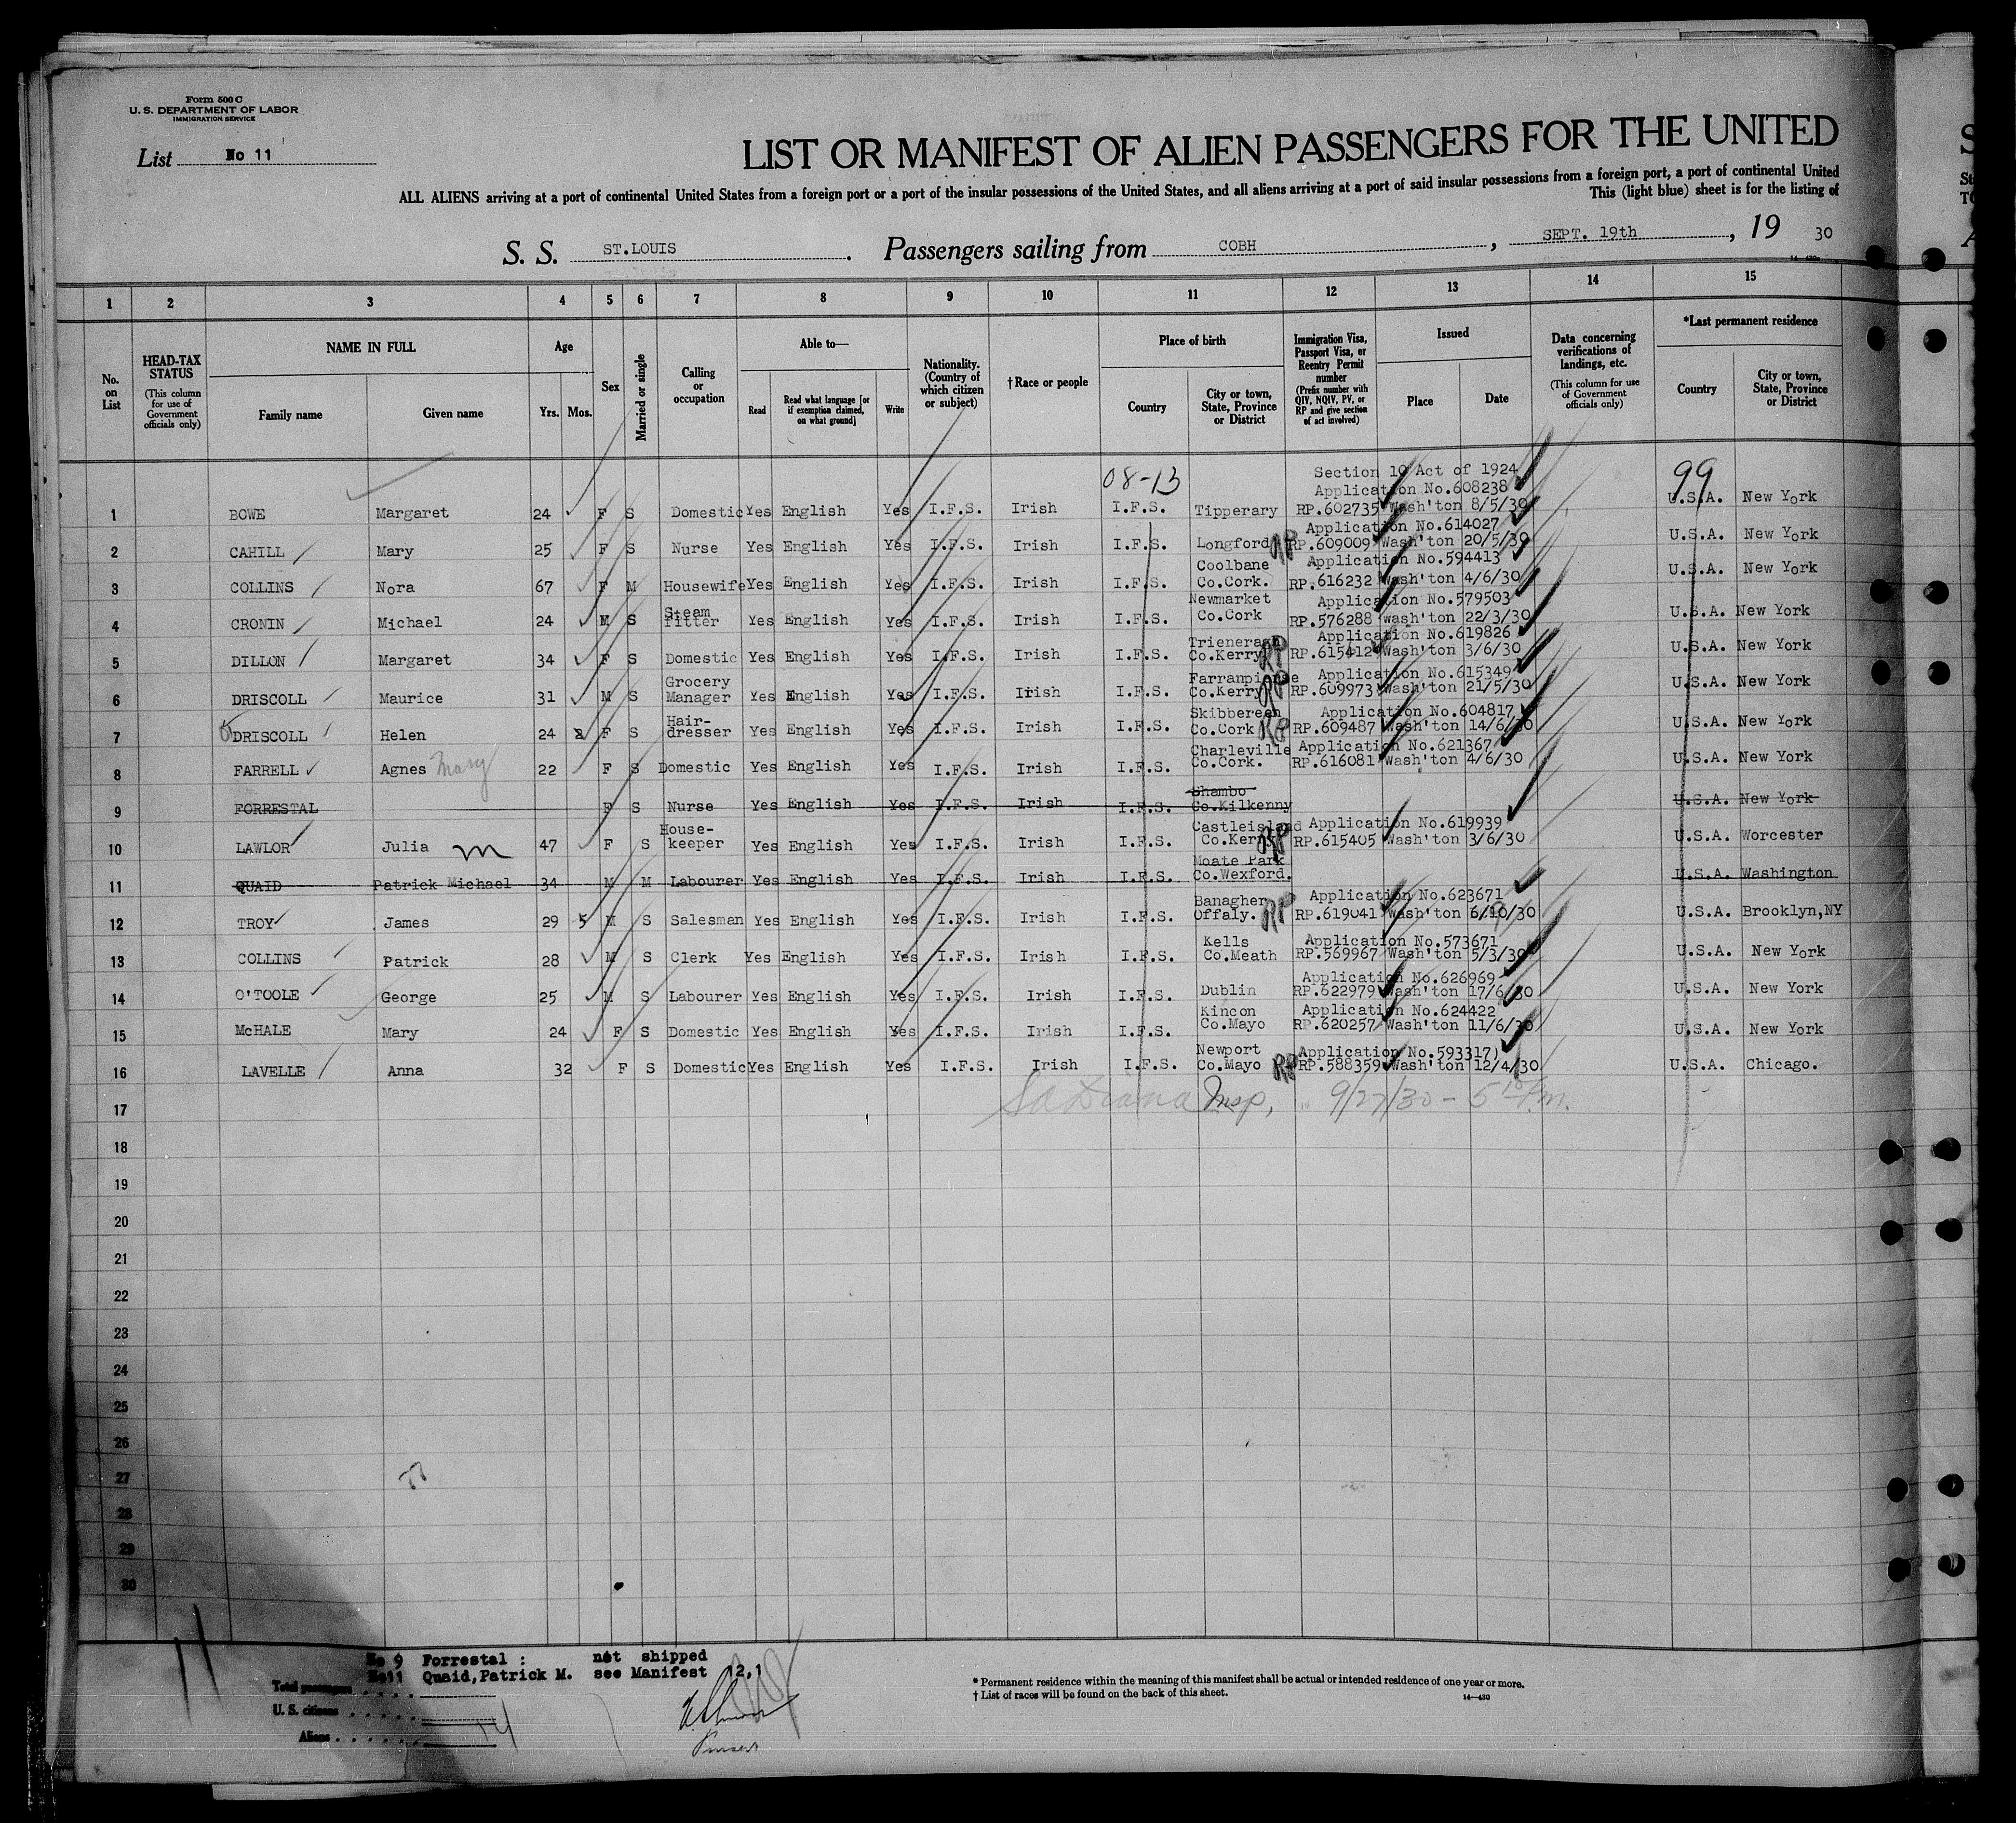 Form 500 C
U. S. DEPARTMENT OF LABOR
IMMIGRATION SERVICE
List No 11
LIST OR MANIFEST OF ALIEN PASSENGERS FOR THE UNITED
ALL ALIENS arriving at a port of continental United States from a foreign port or a port of the insular possessions of the United States, and all aliens arriving at a port of said insular possessions from a foreign port, a port of continental United
This (light blue) sheet is for the listing of
S. S. ST.LOUIS. Passengers sailing from COBH, SEPT. 19th, 19 30
1 2 3 4 5 6 7 8 9 10 11 12 13 14 15
No. on List
HEAD-TAX STATUS (This column for use of Government officials only)
NAME IN FULL Family name Given name
Age Yrs. Mos.
Sex
Married or single
Calling or occupation
Able to— Read Read what language [or if exemption claimed, on what ground] Write
Nationality. (Country of which citizen or subject)
†Race or people
Place of birth Country City or town, State, Province or District
Immigration Visa, Passport Visa, or Reentry Permit number (Prefix number with QIV, NQIV, PV, or RP and give section of act involved)
Issued Place Date
Data concerning verifications of landings, etc. (This column for use of Government officials only)
*Last permanent residence Country City or town, State, Province or District
08-13 Section 10 Act of 1924 99
Application No.608238
1 BOWE Margaret 24 F S Domestic Yes English Yes I.F.S. Irish I.F.S. Tipperary RP.602735 Wash'ton 8/5/30 U.S.A. New York
Application No.614027
2 CAHILL Mary 25 F S Nurse Yes English Yes I.F.S. Irish I.F.S. Longford RP RP.609009 Wash'ton 20/5/30 U.S.A. New York
Coolbane Application No.594413
3 COLLINS Nora 67 F M Housewife Yes English Yes I.F.S. Irish I.F.S. Co.Cork. RP.616232 Wash'ton 4/6/30 U.S.A. New York
Steam Newmarket Application No.579503
4 CRONIN Michael 24 M S fitter Yes English Yes I.F.S. Irish I.F.S. Co.Cork RP.576288 Wash'ton 22/3/30 U.S.A. New York
Application No.619826
5 DILLON Margaret 34 F S Domestic Yes English Yes I.F.S. Irish I.F.S. Co.Kerry RP RP.615412 Wash'ton 3/6/30 U.S.A. New York
Grocery Application No.615349
6 DRISCOLL Maurice 31 M S Manager Yes English Yes I.F.S. Irish I.F.S. Co.Kerry RP RP.609973 Wash'ton 21/5/30 U.S.A. New York
Hair- Skibbereen Application No.604817
7 DRISCOLL Helen 24 2 F S dresser Yes English Yes I.F.S. Irish I.F.S. Co.Cork RP RP.609487 Wash'ton 14/6/30 U.S.A. New York
Charleville Application No.621367
8 FARRELL Agnes Mary 22 F S Domestic Yes English Yes I.F.S. Irish I.F.S. Co.Cork. RP.616081 Wash'ton 4/6/30 U.S.A. New York
Shambo
9 FORRESTAL F S Nurse Yes English Yes I.F.S. Irish I.F.S. Co.Kilkenny U.S.A. New York
House- Castleisland Application No.619939
10 LAWLOR Julia m 47 F S keeper Yes English Yes I.F.S. Irish I.F.S. Co.Kerry RP RP.615405 Wash'ton 3/6/30 U.S.A. Worcester
Moate Park
11 QUAID Patrick Michael 34 M M Labourer Yes English Yes I.F.S. Irish I.F.S. Co.Wexford. U.S.A. Washington
Banagher Application No.623671
12 TROY James 29 5 M S Salesman Yes English Yes I.F.S. Irish I.F.S. Offaly. RP RP.619041 Wash'ton 6/10/30 U.S.A. Brooklyn,NY
Kells Application No.573671
13 COLLINS Patrick 28 M S Clerk Yes English Yes I.F.S. Irish I.F.S. Co.Meath RP.569967 Wash'ton 5/3/30 U.S.A. New York
Application No.626969
14 O'TOOLE George 25 M S Labourer Yes English Yes I.F.S. Irish I.F.S. Dublin RP.622979 Wash'ton 17/6/30 U.S.A. New York
Kincon Application No.624422
15 McHALE Mary 24 F S Domestic Yes English Yes I.F.S. Irish I.F.S. Co.Mayo RP.620257 Wash'ton 11/6/30 U.S.A. New York
Newport Application No.593317)
16 LAVELLE Anna 32 F S Domestic Yes English Yes I.F.S. Irish I.F.S. Co.Mayo RP RP.588359 Wash'ton 12/4/30 U.S.A. Chicago.
17 Insp, 9/27/30 - 5 10 P.m.
18
19
20
21
22
23
24
25
26
27
28
29
30
No 9 Forrestal : not shipped
No11 Quaid,Patrick M. see Manifest 12,1
Total passengers
U. S. citizens
Aliens 14
Purser
* Permanent residence within the meaning of this manifest shall be actual or intended residence of one year or more.
† List of races will be found on the back of this sheet.
14—430